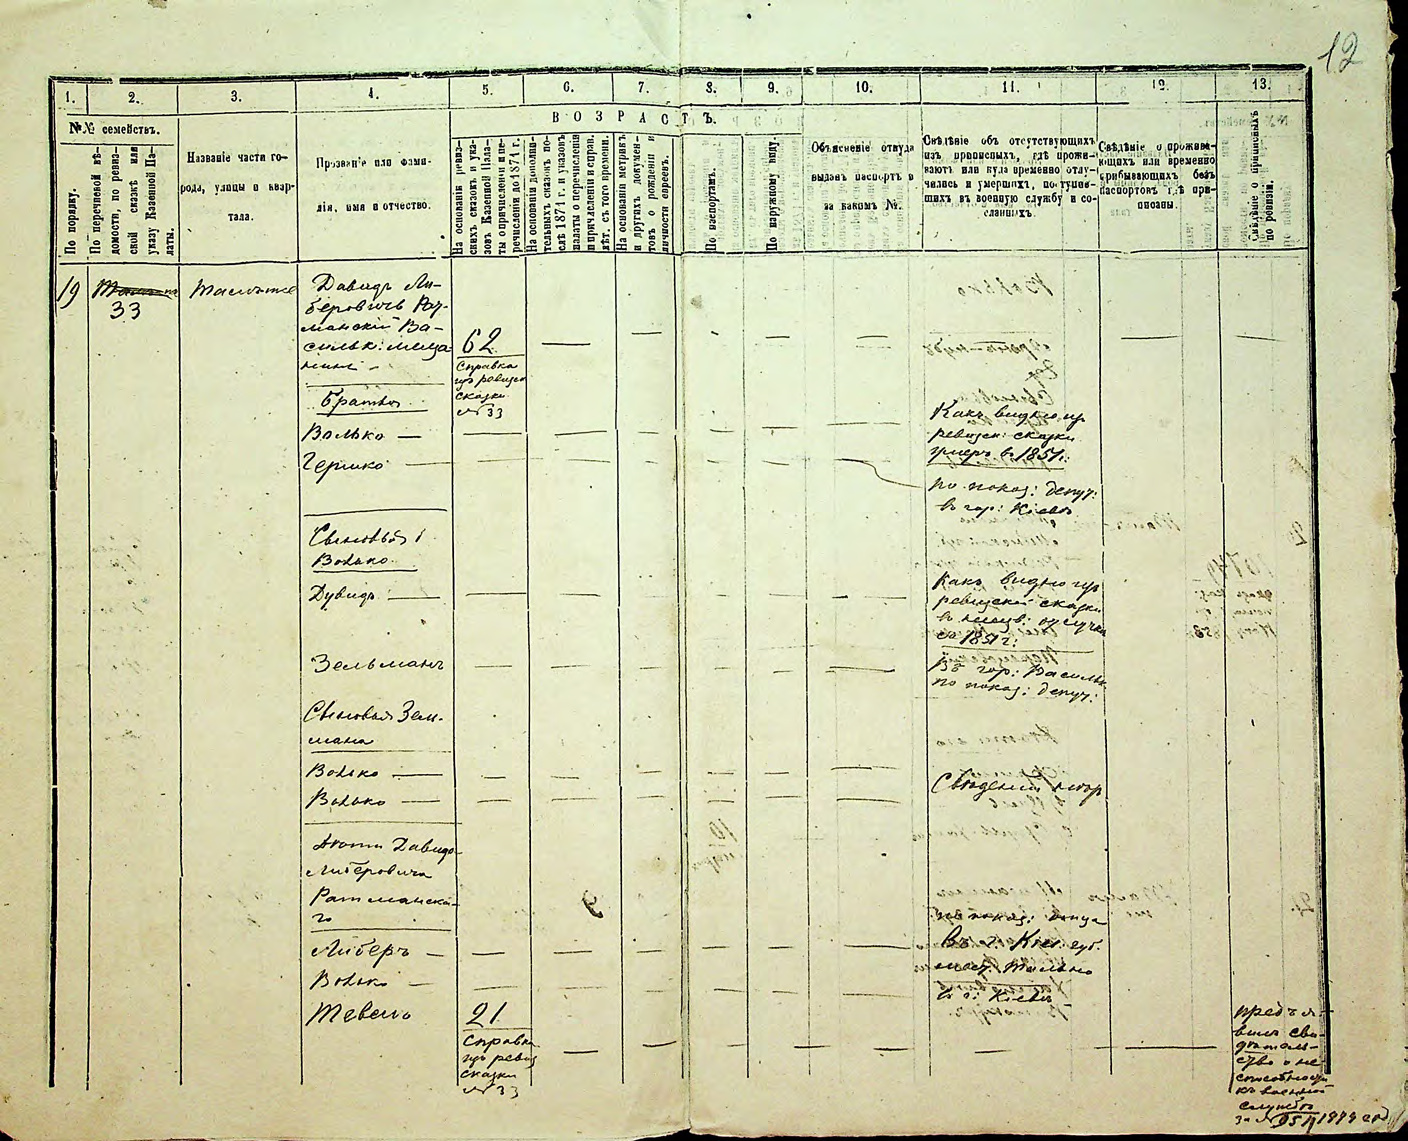 12
1. 2. 3. 4. 5. 6. 7. 8. 9. 10. 11. 12. 13.
№№ семействъ.
По порядку.
По перечневой вѣ-
домости, по ревиз-
ской сказкѣ или
указу Казенной Па-
латы.
Названіе части го-
рода, улицы и квар-
тала.
Прозваніе или фами-
лія, имя и отчество.
ВОЗРАСТЪ.
На основаніи ревиз-
скихъ сказокъ и ука-
зовъ Казенной Пала-
ты о причисленіи и пе-
речисленіи до 1874 г.
На основаніи дополни-
тельныхъ сказокъ по-
слѣ 1874 г. и указовъ
палаты о перечисленіи
и причисленіи и справ.
лѣт. съ того времени.
На основаніи метрикъ
и другихъ докумен-
товъ о рожденіи и
личности евреевъ.
По паспортамъ.
По наружному виду.
Объясненіе откуда
выданъ паспортъ и
за какимъ №.
Свѣдѣніе объ отсутствующихъ
изъ приписныхъ, гдѣ прожи-
ваютъ или куда временно отлу-
чились и умершихъ, поступив-
шихъ въ военную службу и со-
сланныхъ.
Свѣдѣніе о прожива-
ющихъ или временно
прибывающихъ безъ
паспортовъ гдѣ при-
писаны.
Свѣдѣніе о припи­сныхъ
по ревизіи.
19
33
Давидъ Ли-
беровичъ Рат-
манскій Ва-
сильк: меща-
нинъ
62
справка
изъ ревизск
сказки
№ 33
Братья
Волько
Гершко
Какъ видно изъ
ревизск: сказки
умеръ въ 1851 г.
по показ: депут:
въ гор: Кіевъ
Сыновья
Волько
Дувидъ
Какъ видно изъ
ревизской сказки
въ неизв: отлучкѣ
съ 1851 г:
Зельманъ
Въ гор: Васильк
по показ: депут:
Сыновья Зель-
мана
Волько
Волько
Свѣдений
Дѣти Давида
Либеровича
Ратманска-
го
по показ:
Либеръ
Въ г. Кіев. губ.
мѣст. Тально
Волько
въ г: Кіевъ
Тевель
21
справка
изъ ревиз
сказки
№ 33
предъя-
вилъ сви-
дѣтель-
ство о не-
способности
къ военной
службѣ
за №